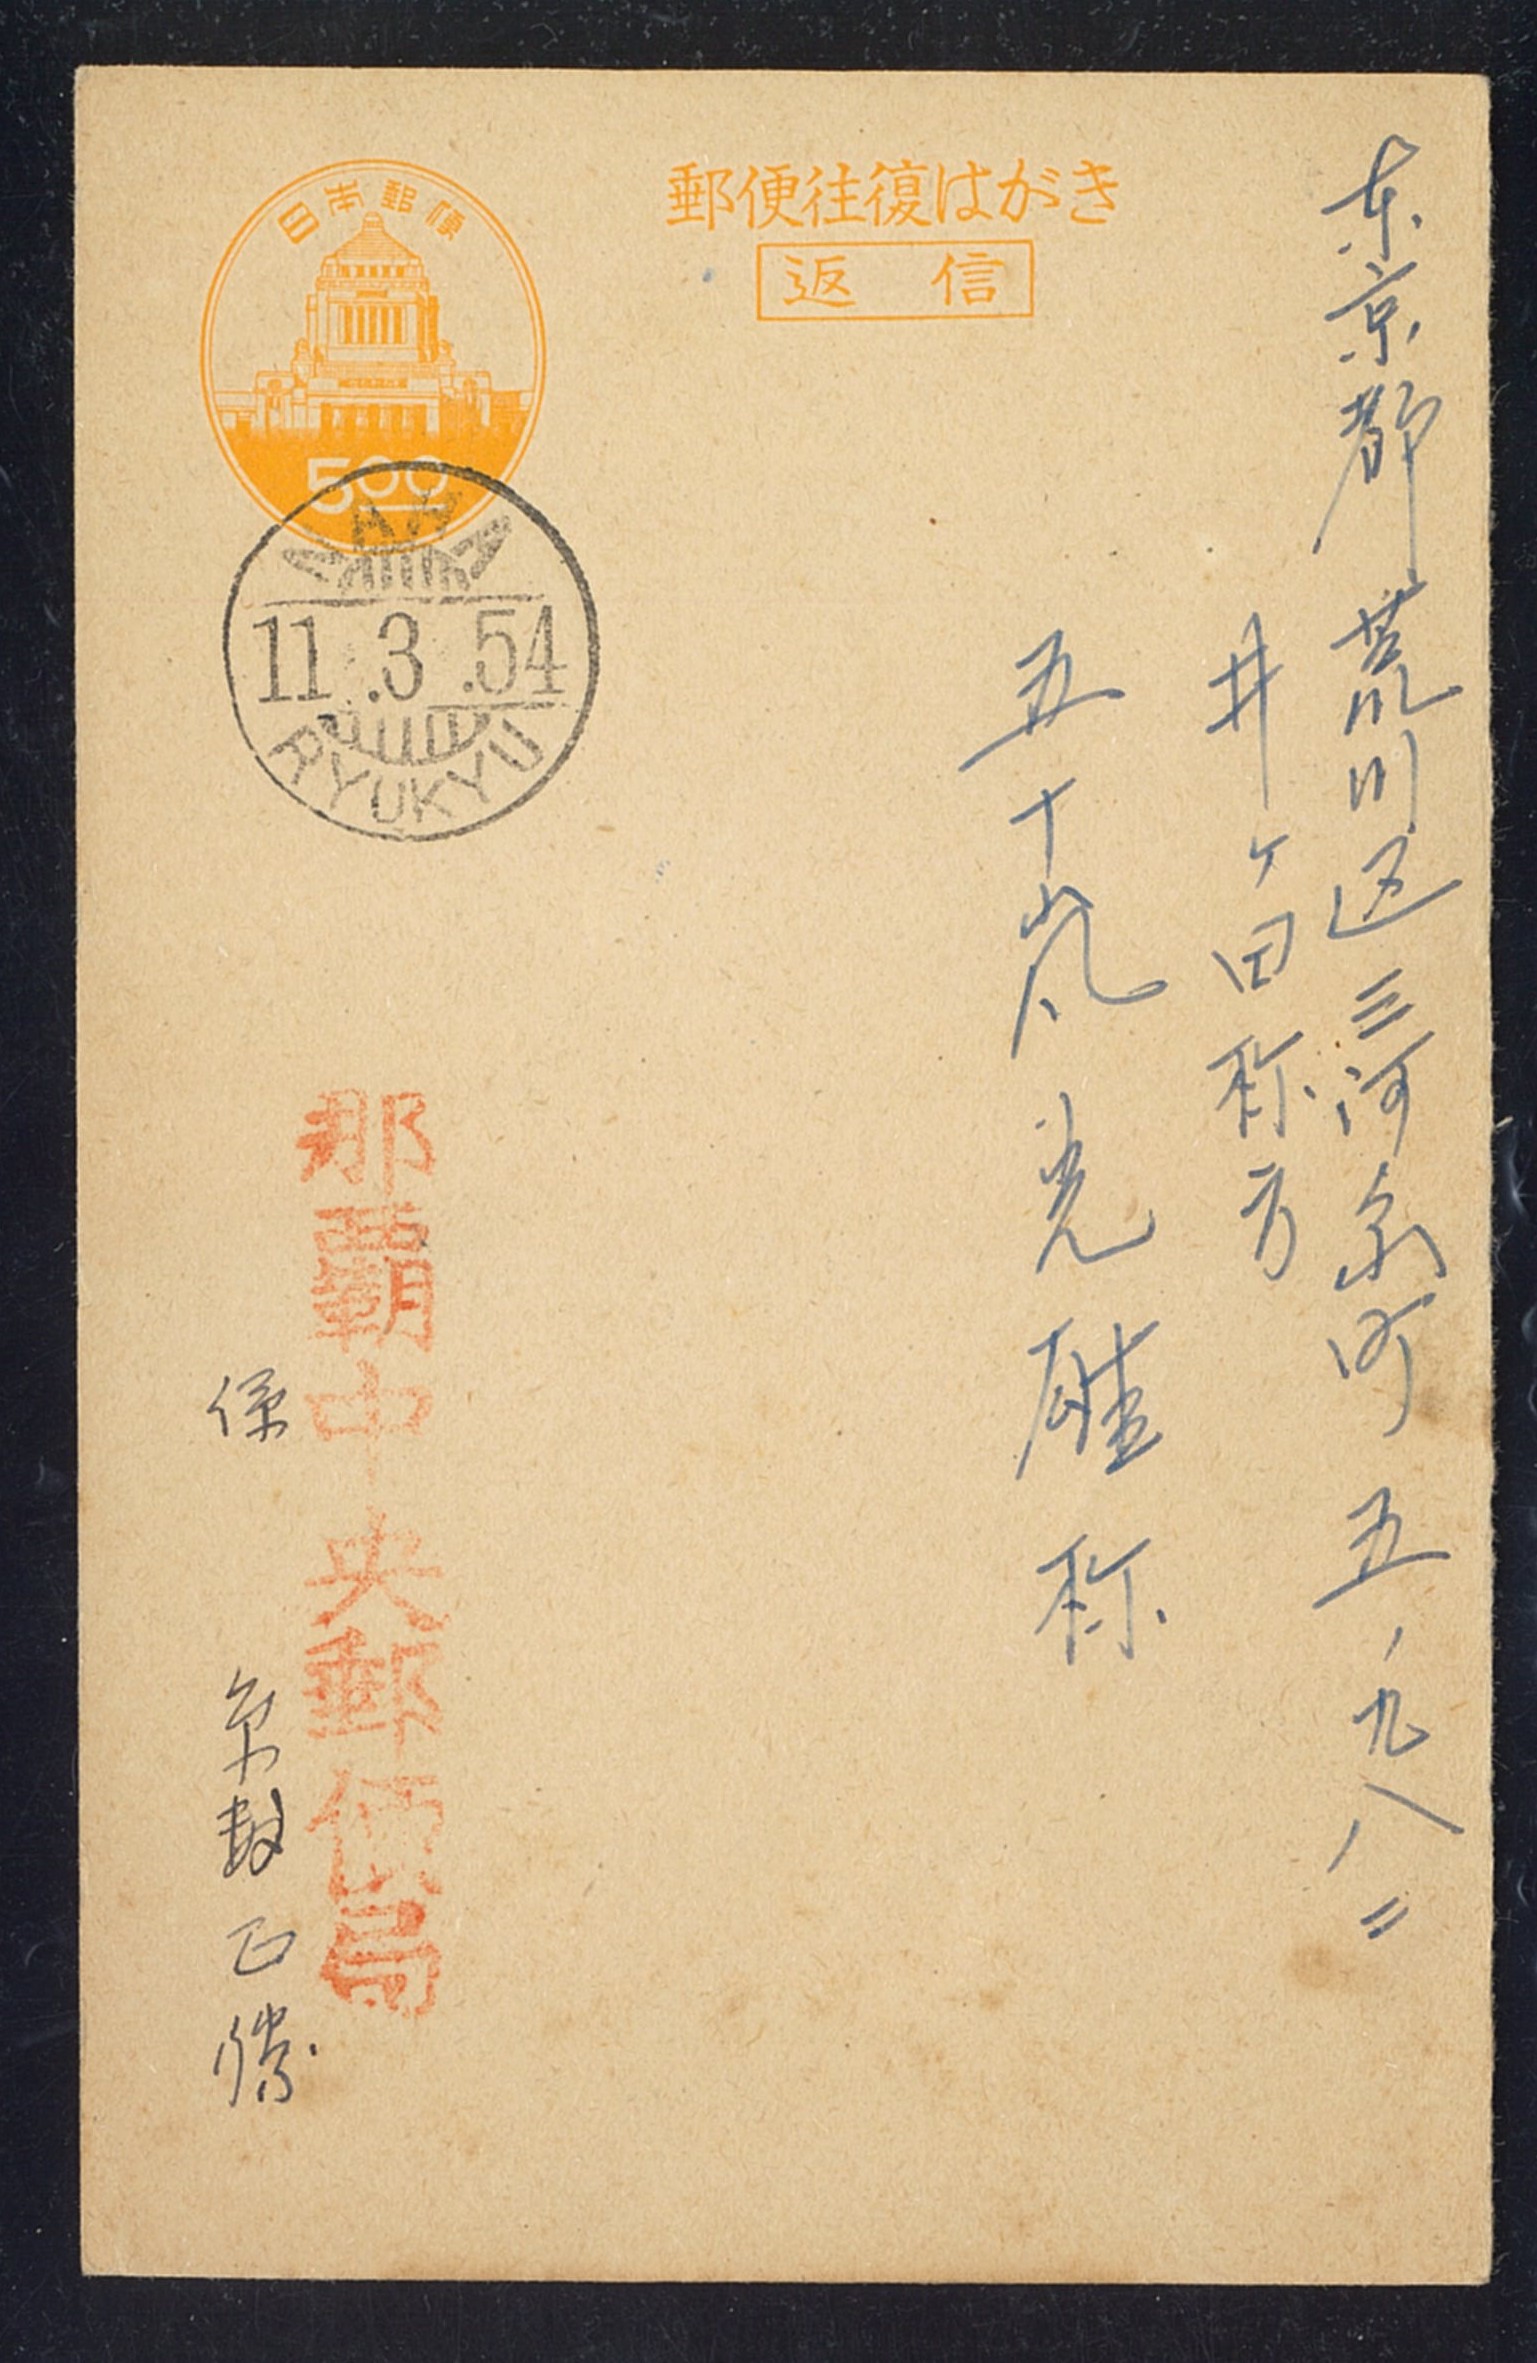 郵便往復はがき
返信
日本郵便
5.00
NAHA
11.3.54
RYUKYU
東京都荒川区三河島町五ノ九八二
井ヶ田称方
五十嵐光雄称
那覇中央郵便局
係
正勝